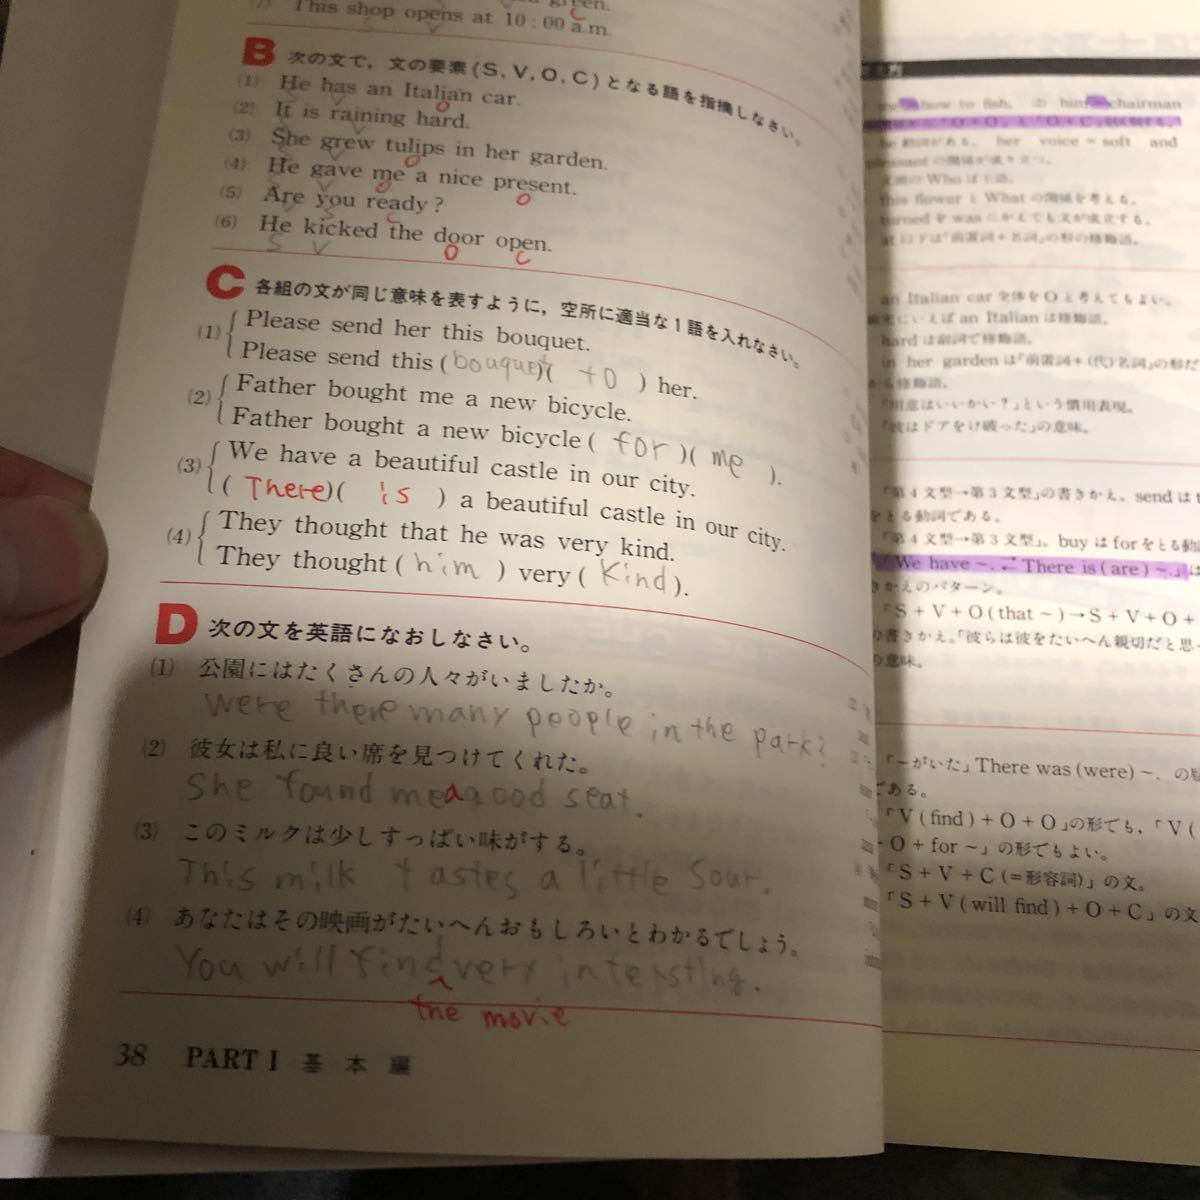 This shop opens at 10:00 a.m.
B 次の文で，文の要素(S, V, O, C)となる語を指摘しなさい。
(1) He has an Italian car.
O
(2) It is raining hard.
(3) She grew tulips in her garden.
O
(4) He gave me a nice present.
O O
(5) Are you ready?
C
(6) He kicked the door open.
S V O C
C 各組の文が同じ意味を表すように，空所に適当な1語を入れなさい。
(1) Please send her this bouquet.
Please send this ( bouquet )( to ) her.
(2) Father bought me a new bicycle.
Father bought a new bicycle ( for )( me ).
(3) We have a beautiful castle in our city.
( There )( is ) a beautiful castle in our city.
(4) They thought that he was very kind.
They thought ( him ) very ( kind ).
D 次の文を英語になおしなさい。
(1) 公園にはたくさんの人々がいましたか。
Were there many people in the park?
(2) 彼女は私に良い席を見つけてくれた。
She found me a good seat.
(3) このミルクは少しすっぱい味がする。
This milk tastes a little sour.
(4) あなたはその映画がたいへんおもしろいとわかるでしょう。
You will find very intersting.
the movie
38 PART I 基本編
how to fish, (2) him chairman
her voice = soft and
文頭の Who は主語。
this flower と What の関係を考える。
turned を was にかえても文が成立する。
は「前置詞+名詞」の形の修飾語。
an Italian car 全体を O と考えてもよい。
にいえば an Italian は修飾語。
hard は副詞で修飾語。
in her garden は「前置詞+(代)名詞」の形だ
から修飾語。
「用意はいいかい？」という慣用表現。
「彼はドアをけ破った」の意味。
「第4文型→第3文型」の書きかえ。send は t
をとる動詞である。
「第4文型→第3文型」。buy は for をとる動
We have ～. ⇄ There is (are) ～.」は
きかえのパターン。
「S+V+O(that ～)→S+V+O+
の書きかえ。「彼らは彼をたいへん親切だと思
の意味。
「～がいた」There was (were) ～. の
である。
「V(find)+O+O」の形でも，「V(
+O+for ～」の形でもよい。
「S+V+C(=形容詞)」の文。
「S+V(will find)+O+C」の文